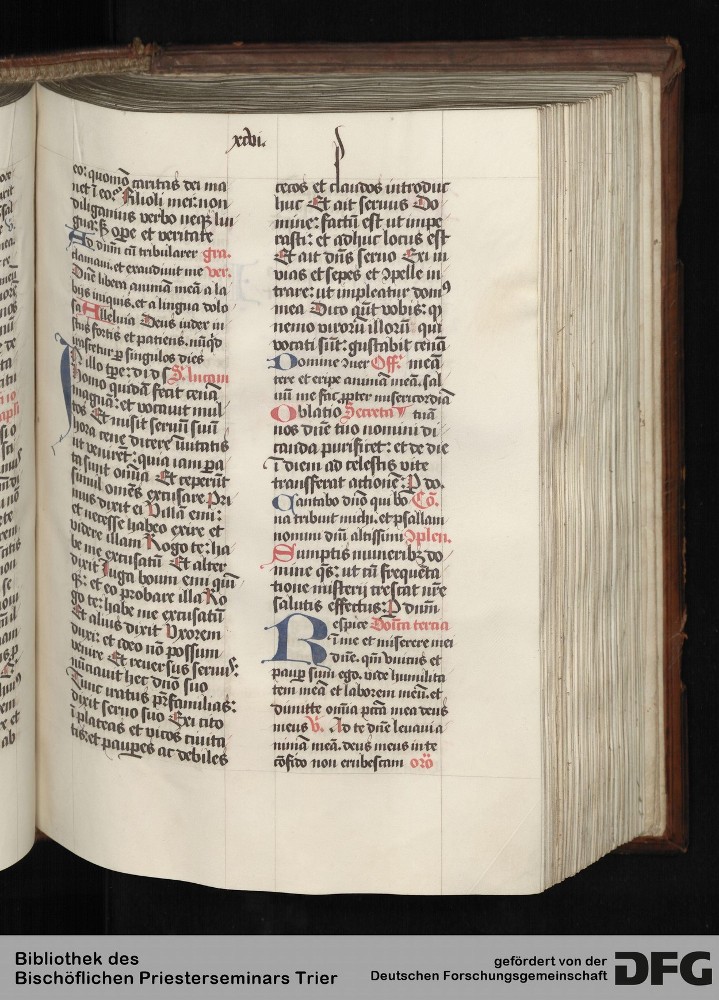 xcvi.
p
eo: quomō caritas dei ma
net ī eo? Filioli mei: non
diligamus verbo neqȝ lin
gua: sꝫ ope et veritate
Ad dūm cū tribularer gra.
clamaui. et exaudiuit me ver.
Dūe libera animam meā a la
bijs iniquis. et a lingua dolo
sa Alleluia Deus iudex iu
stus fortis et patiens. nūqid
irascetur p singulos dies
In illo tpe: di d s S. lucam
Homo quidā fecit cenā
magnā: et vocauit mul
tos Et misit seruū suū
hora cene dicere īuitatis
ut veniret: quia iam pa
ta sunt omīa Et ceperūt
simul omēs excusare Pri
mus dixit ei Villā emi:
et necesse habeo exire et
videre illam Rogo te: ha
be me excusatū Et alter
dixit Iuga boum emi quī
qȝ: et eo probare illa Ro
go te: habe me excusatū
Et alius dixit Vxorem
duxi: et ideo nō possum
venire Et reuersus seruus:
nūciauit hec dnō suo
Tunc iratus pr̄familias:
dixit seruo suo Exi cito
ī plateas et vicos ciuita
tis: et paupes ac debiles
cecos et claudos introduc
huc Et ait seruus Do
mine: factū est ut impe
rasti: et adhuc locus est
Et ait dn̄s seruo Exi in
vias et sepes et ↄpelle in
trare: ut impleatur domꝰ
mea Dico aūt vobis: qꝫ
nemo virorū illorū qui
vocati sūt: gustabit cenā
Domine ↄuer Off. meā
tere et eripe animā meā. sal
uū me fac. ppter misericordiā
Oblatio Secreta tuā
nos dn̄e tuo nomini di
canda purificet: et de die
ī diem ad celestis vite
transferat actionē: P do.
Cantabo dn̄o qui bo Cō.
na tribuit michi. et psallam
nomini dn̄i altissimi ↄplen.
Sumptis muneribȝ do
mine qs: ut cū frequēta
tione misterij crescat nr̄e
salutis effectus: P dnm̄
Respice Domīca tercia
ī me et miserere mei
dn̄e. qm̄ vnicus et
paup sum ego. vide humilita
tem meā et laborem meū. et
dimitte omīa pctā mea deus
meus V. Ad te dn̄e leuaui a
nimā meā. deus meus in te
cōfido non erubescam orō
Bibliothek des
Bischöflichen Priesterseminars Trier
gefördert von der
Deutschen Forschungsgemeinschaft
DFG